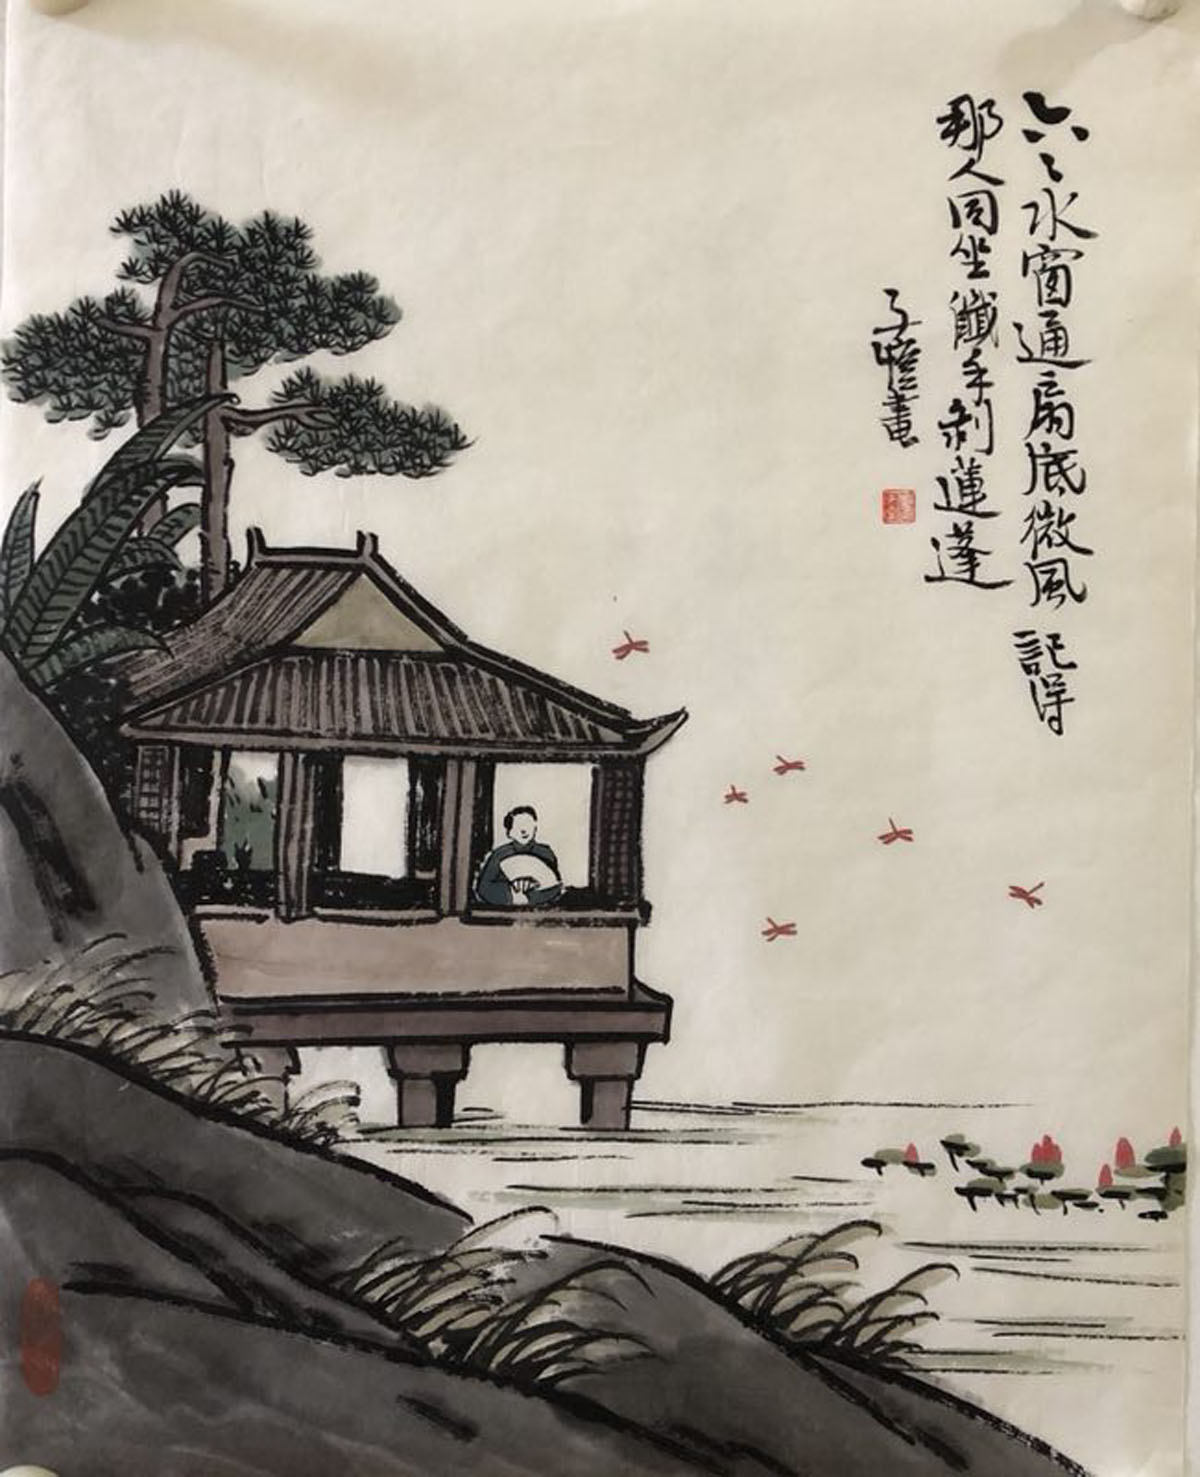 六〻水窗通扇底微風 記得
那人同坐纖手剝蓮蓬
子愷畫